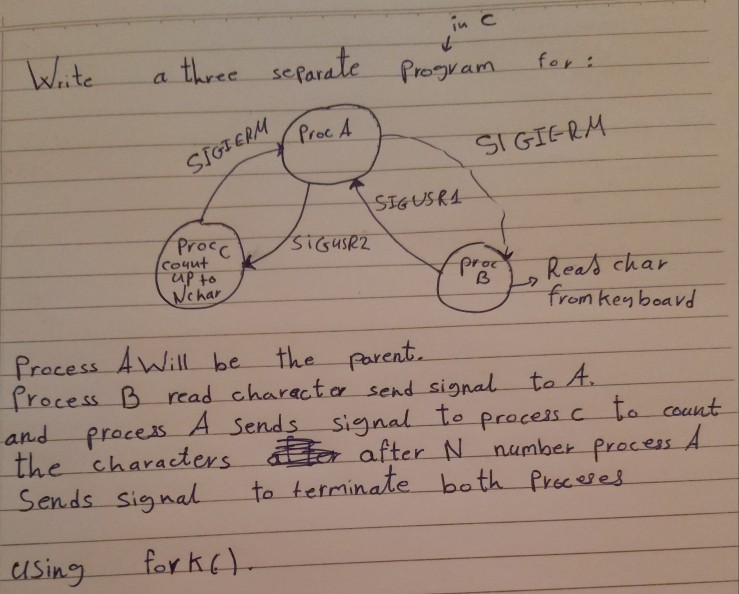 in C
Write a three separate Program for:
SIGIERM
Proc A
SIGIERM
SIGUSR1
SIGUSR2
Proc C
count
up to
Nchar
Proc
B
Read char
from keyboard
Process A Will be the parent.
Process B read character send signal to A.
and process A sends signal to process c to count
the characters after N number process A
Sends signal to terminate both Proceses
using fork().